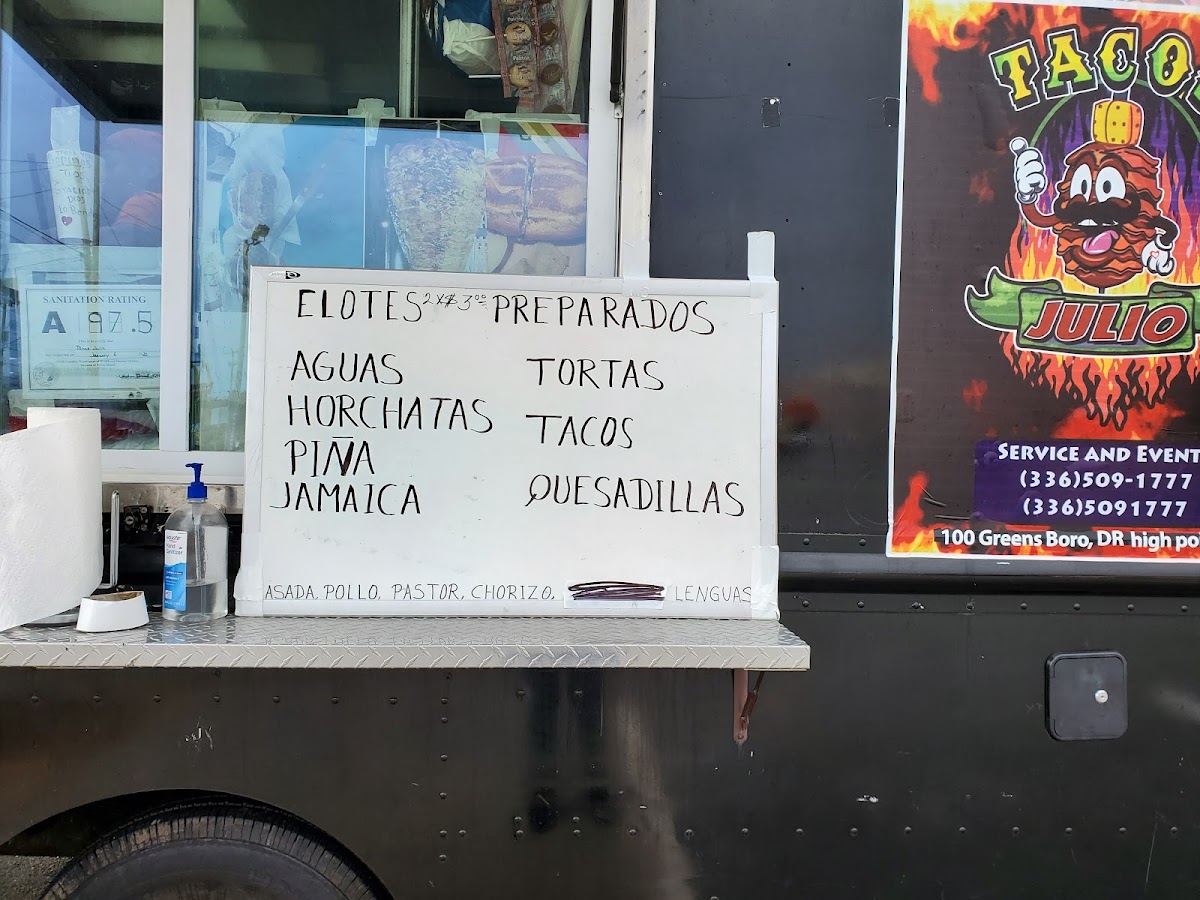 ELOTES 2X$3.00 PREPARADOS
AGUAS
HORCHATAS
PIÑA
JAMAICA
TORTAS
TACOS
QUESADILLAS
ASADA, POLLO, PASTOR, CHORIZO, LENGUAS
SANITATION RATING
A 97.5
TACO
JULIO
SERVICE AND EVENT
(336)509-1777
(336)5091777
100 Greens Boro, DR high po